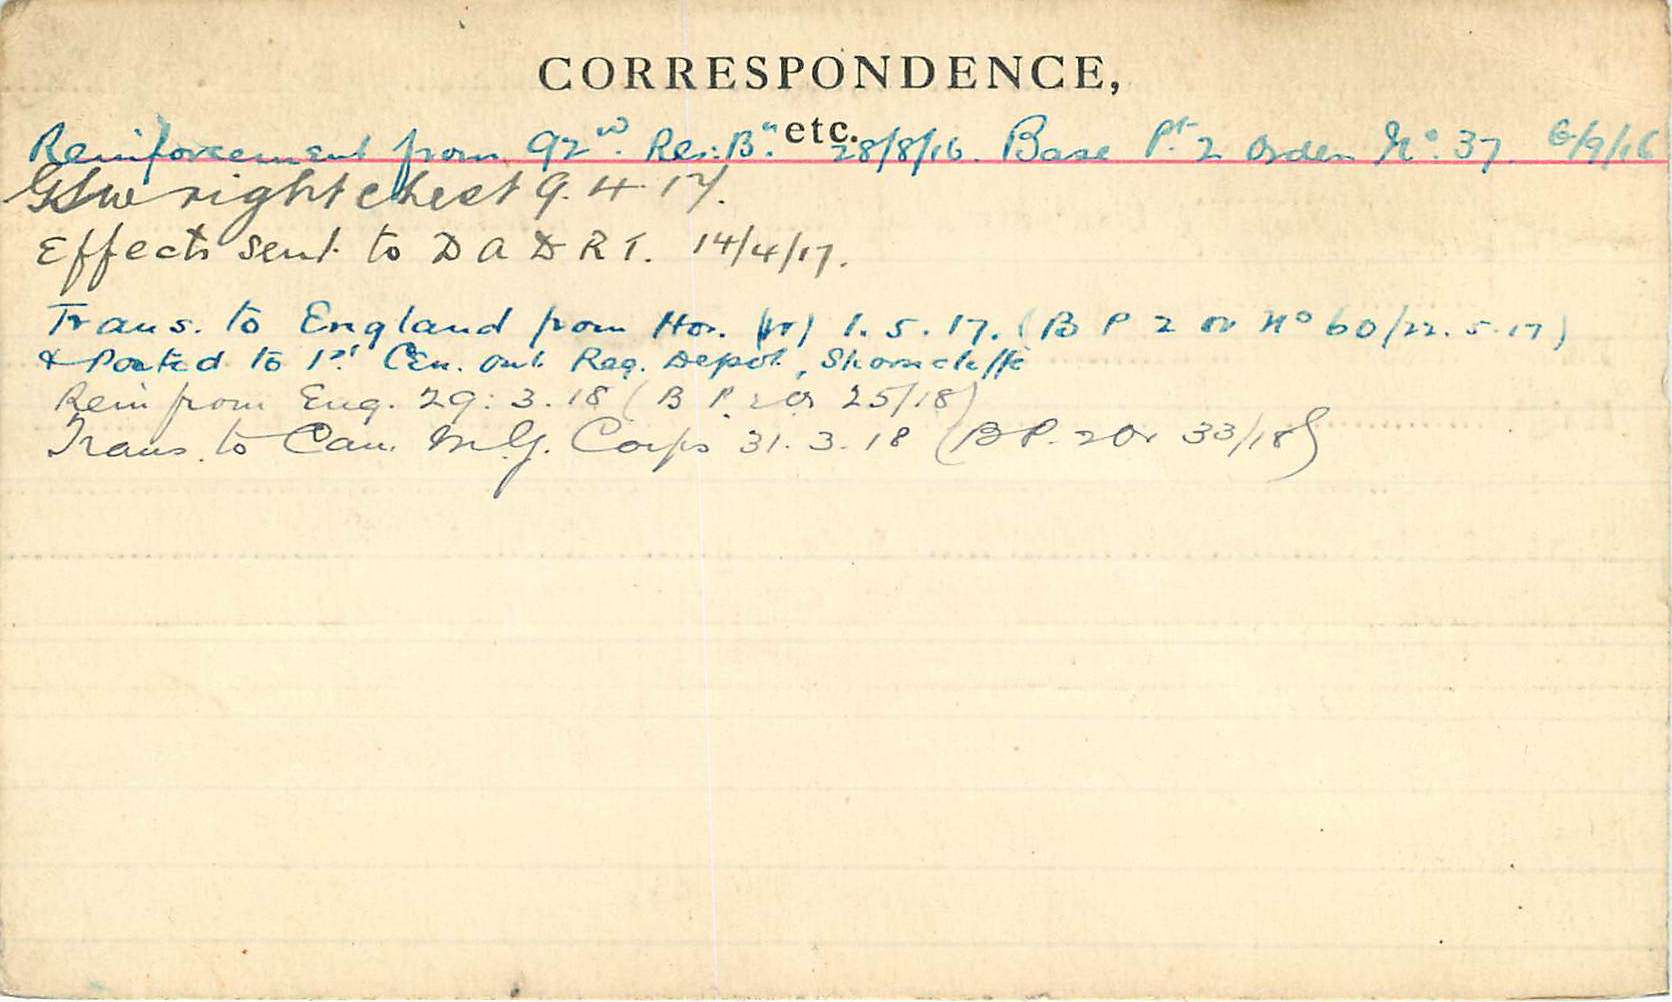 CORRESPONDENCE,
etc.
Reinforcement from 92nd. Res. Bn. 28/8/16. Base Pt. 2 Order No. 37. 6/9/16
GSW right chest 9.4.17.
Effects sent to D A D R T. 14/4/17.
Trans. to England from Hos. (W) 1.5.17. (B P 2 Or No 60/22.5.17)
& Posted to 1st Cen. Ont Reg. Depot, Shorncliffe
Rein from Eng. 29.3.18 (B P. 2 Or 25/18)
Trans. to Can. M.G. Corps 31.3.18 (B P. 2 Or 33/18)